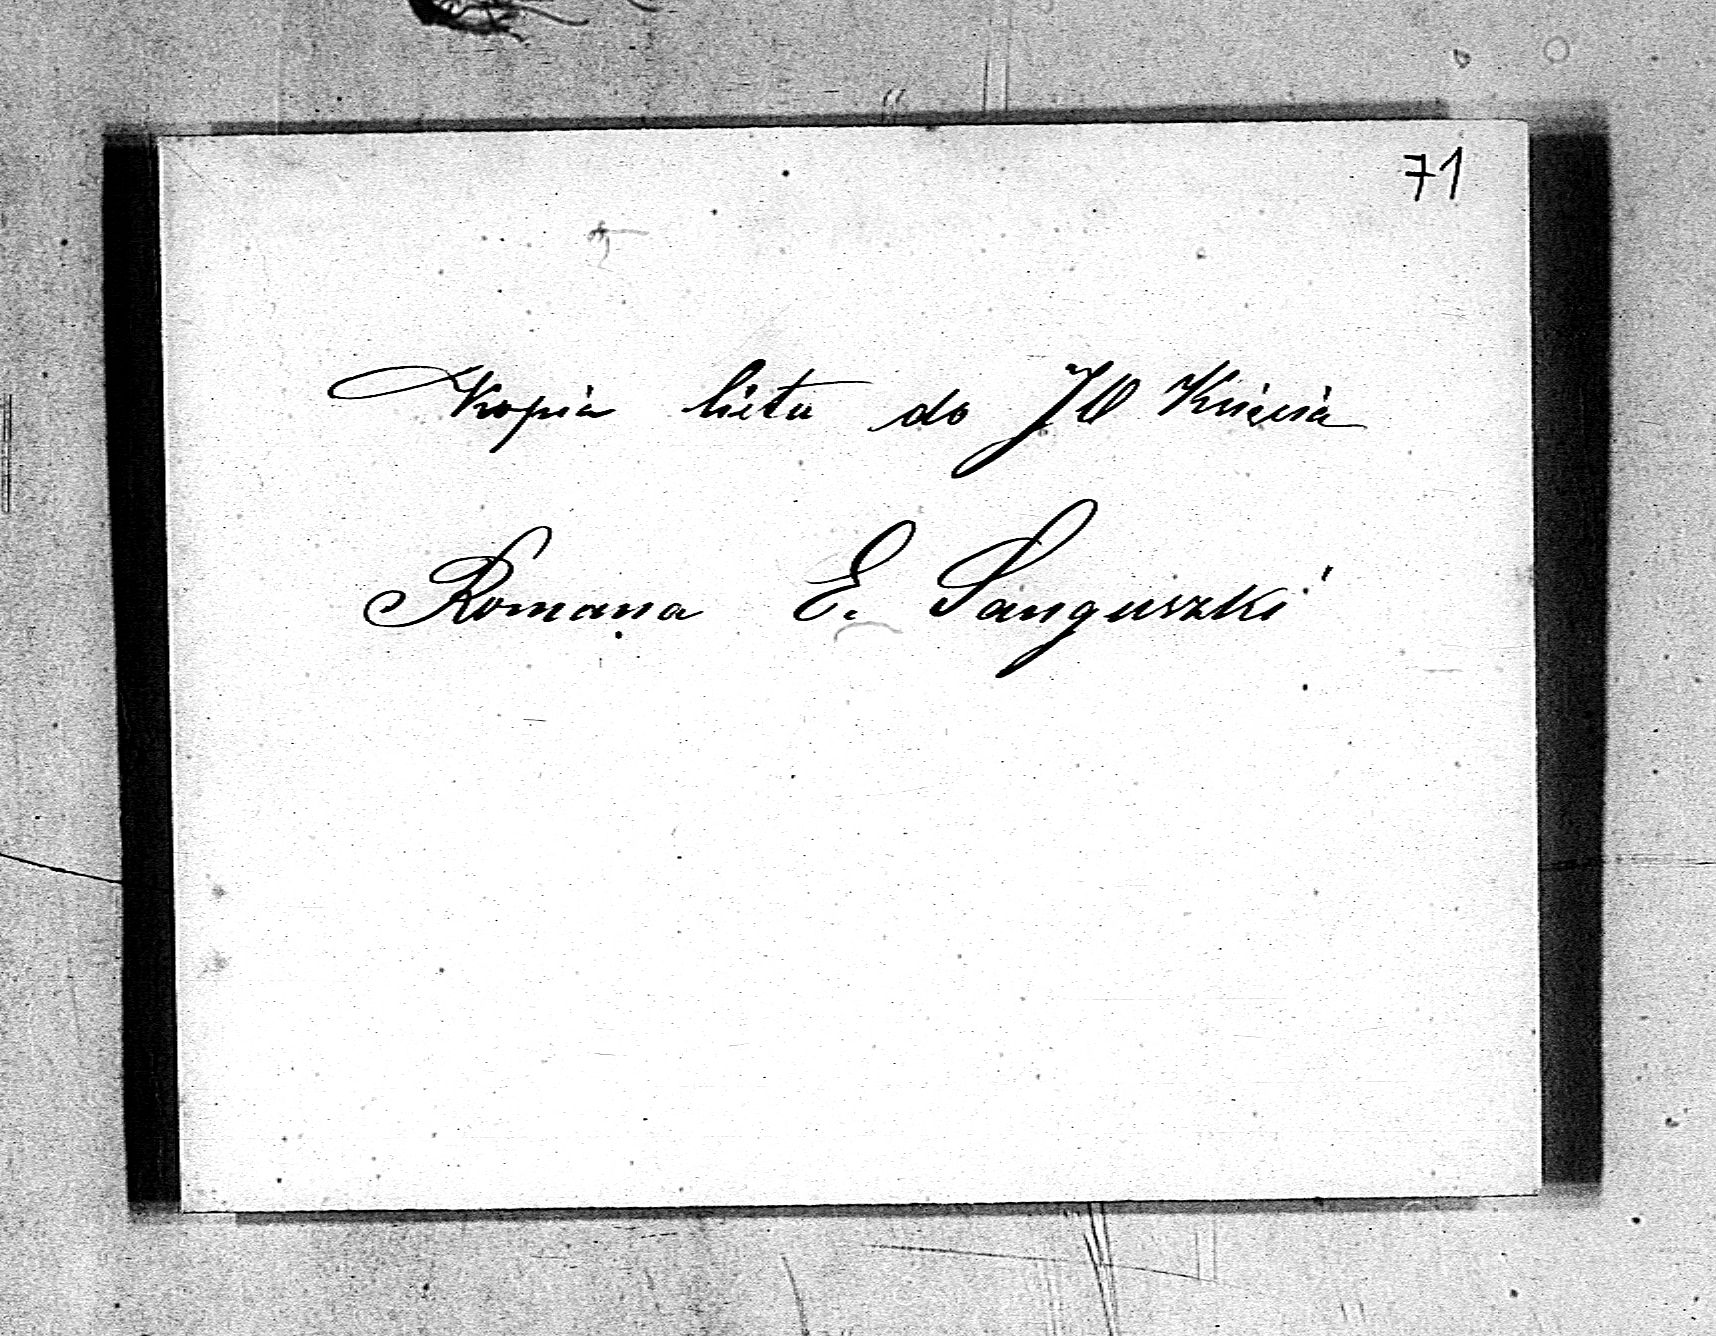 71
Kopia listu do JO Księcia
Romana E. Sanguszki